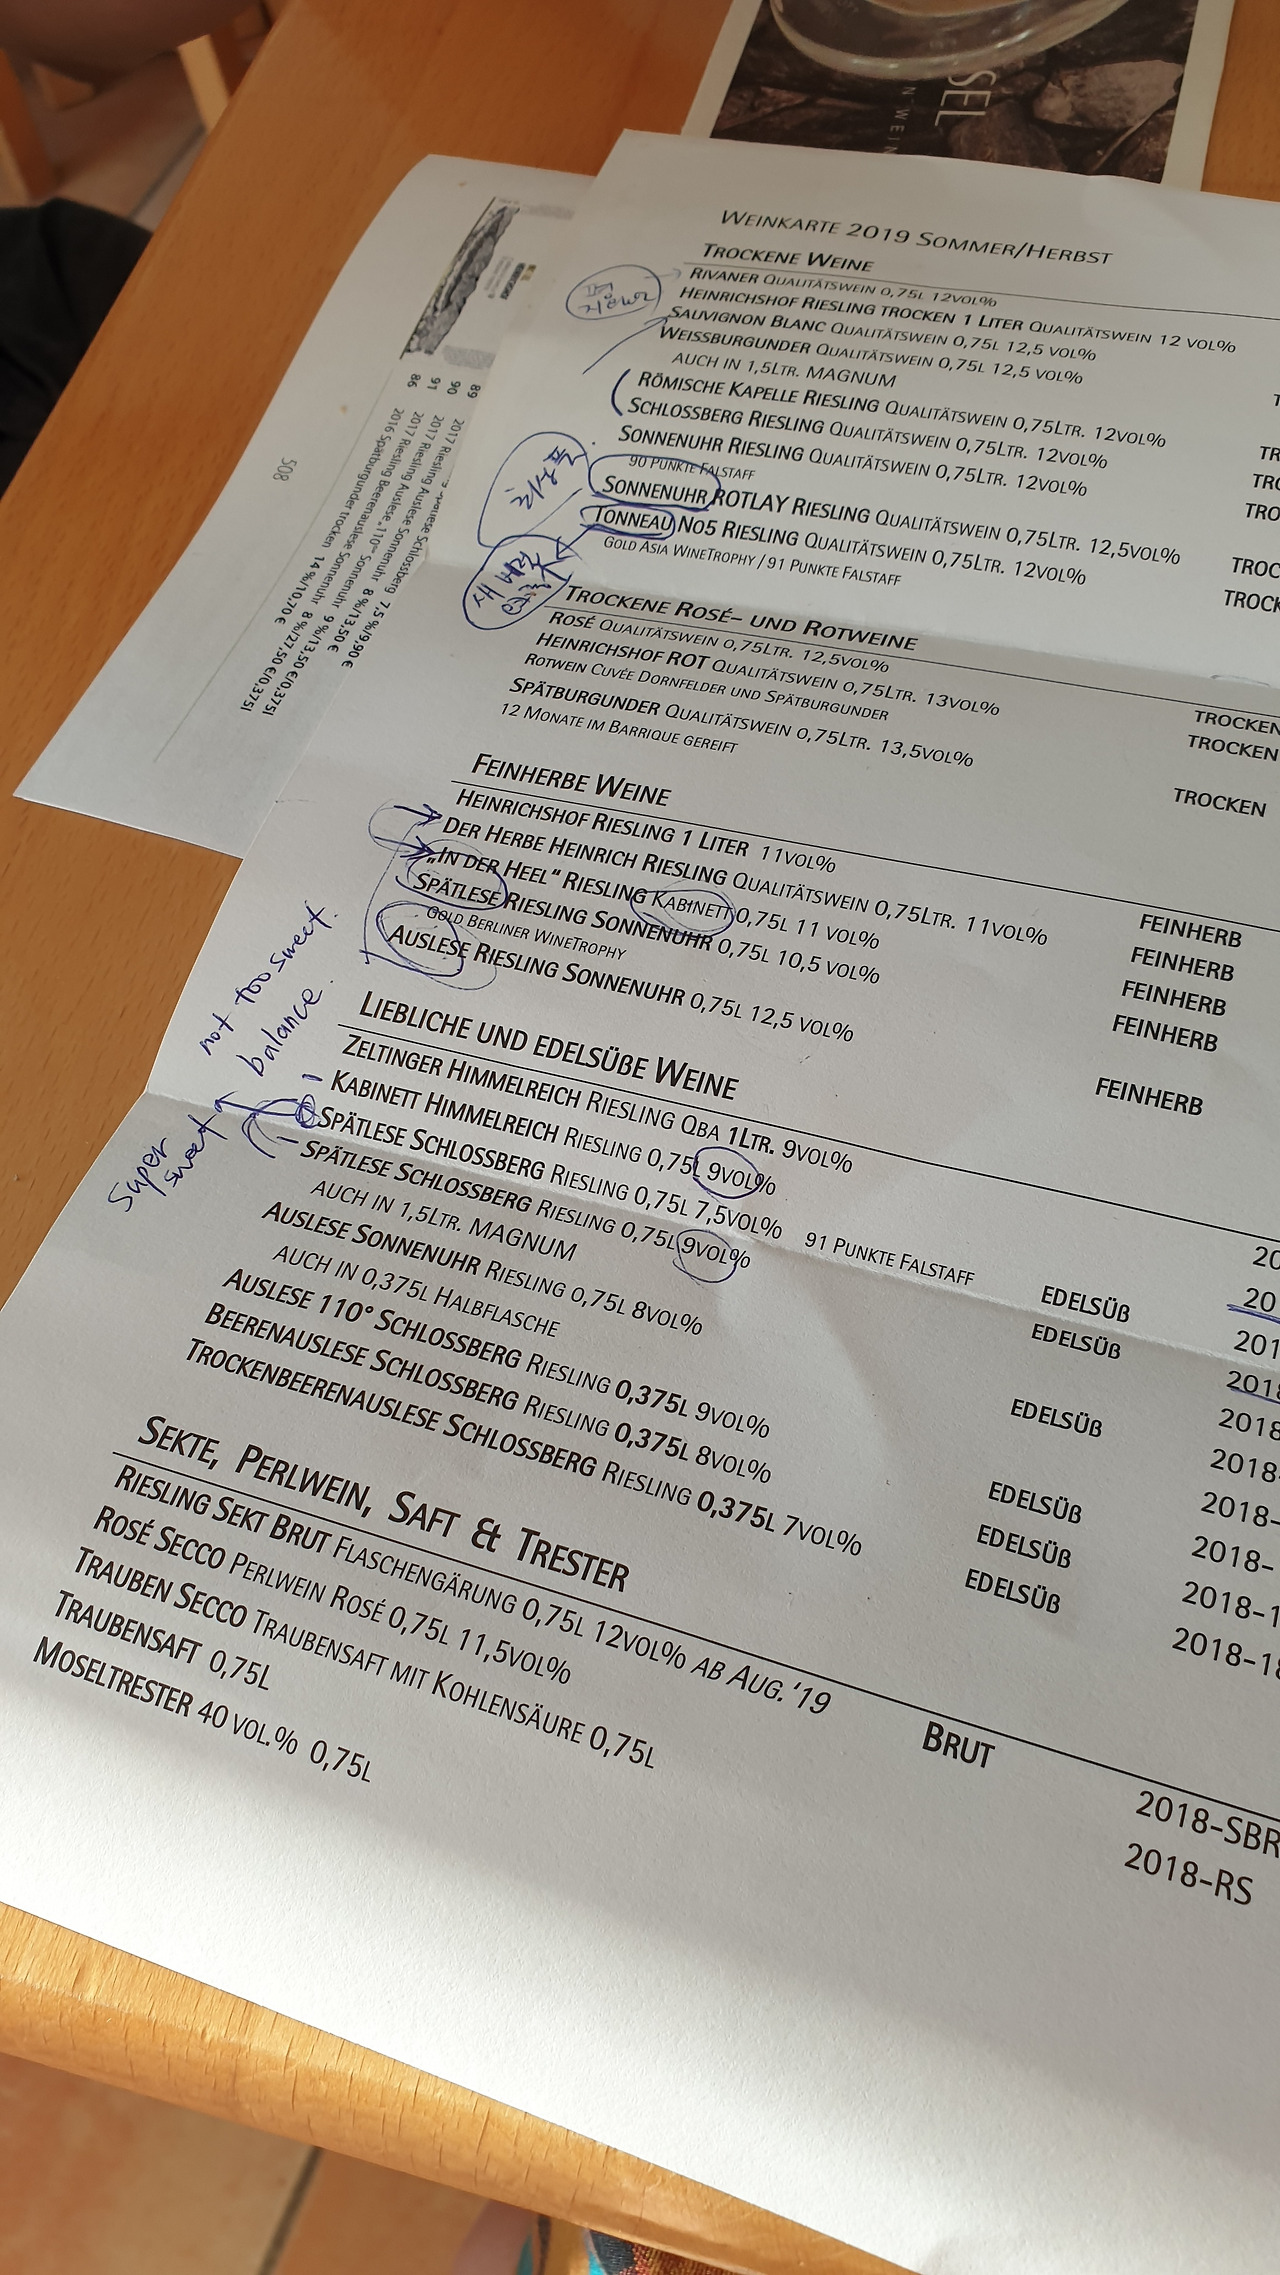 SEL
N WEIN
WEINKARTE 2019 SOMMER/HERBST
TROCKENE WEINE
RIVANER QUALITÄTSWEIN 0,75L 12VOL%
HEINRICHSHOF RIESLING TROCKEN 1 LITER QUALITÄTSWEIN 12 VOL%
SAUVIGNON BLANC QUALITÄTSWEIN 0,75L 12,5 VOL%
WEISSBURGUNDER QUALITÄTSWEIN 0,75L 12,5 VOL%
AUCH IN 1,5LTR. MAGNUM
RÖMISCHE KAPELLE RIESLING QUALITÄTSWEIN 0,75LTR. 12VOL%
SCHLOSSBERG RIESLING QUALITÄTSWEIN 0,75LTR. 12VOL%
SONNENUHR RIESLING QUALITÄTSWEIN 0,75LTR. 12VOL%
90 PUNKTE FALSTAFF
SONNENUHR ROTLAY RIESLING QUALITÄTSWEIN 0,75LTR. 12,5VOL%
TONNEAU NO5 RIESLING QUALITÄTSWEIN 0,75LTR. 12VOL%
GOLD ASIA WINETROPHY / 91 PUNKTE FALSTAFF
TROCKENE ROSÉ- UND ROTWEINE
ROSÉ QUALITÄTSWEIN 0,75LTR. 12,5VOL%
HEINRICHSHOF ROT QUALITÄTSWEIN 0,75LTR. 13VOL% TROCKEN
ROTWEIN CUVÉE DORNFELDER UND SPÄTBURGUNDER TROCKEN
SPÄTBURGUNDER QUALITÄTSWEIN 0,75LTR. 13,5VOL% TROCKEN
12 MONATE IM BARRIQUE GEREIFT
FEINHERBE WEINE
HEINRICHSHOF RIESLING 1 LITER 11VOL% FEINHERB
DER HERBE HEINRICH RIESLING QUALITÄTSWEIN 0,75LTR. 11VOL% FEINHERB
„IN DER HEEL“ RIESLING KABINETT 0,75L 11 VOL% FEINHERB
SPÄTLESE RIESLING SONNENUHR 0,75L 10,5 VOL% FEINHERB
GOLD BERLINER WINETROPHY
AUSLESE RIESLING SONNENUHR 0,75L 12,5 VOL% FEINHERB
not too sweet.
balance.
super
sweet
LIEBLICHE UND EDELSÜßE WEINE
ZELTINGER HIMMELREICH RIESLING QBA 1LTR. 9VOL%
KABINETT HIMMELREICH RIESLING 0,75L 9VOL%
SPÄTLESE SCHLOSSBERG RIESLING 0,75L 7,5VOL% 91 PUNKTE FALSTAFF EDELSÜß
SPÄTLESE SCHLOSSBERG RIESLING 0,75L 9VOL% EDELSÜß
AUCH IN 1,5LTR. MAGNUM
AUSLESE SONNENUHR RIESLING 0,75L 8VOL% EDELSÜß
AUCH IN 0,375L HALBFLASCHE
AUSLESE 110° SCHLOSSBERG RIESLING 0,375L 9VOL% EDELSÜß
BEERENAUSLESE SCHLOSSBERG RIESLING 0,375L 8VOL% EDELSÜß
TROCKENBEERENAUSLESE SCHLOSSBERG RIESLING 0,375L 7VOL% EDELSÜß
SEKTE, PERLWEIN, SAFT & TRESTER
RIESLING SEKT BRUT FLASCHENGÄRUNG 0,75L 12VOL% AB AUG. '19 BRUT 2018-SBR
ROSÉ SECCO PERLWEIN ROSÉ 0,75L 11,5VOL% 2018-RS
TRAUBEN SECCO TRAUBENSAFT MIT KOHLENSÄURE 0,75L
TRAUBENSAFT 0,75L
MOSELTRESTER 40 VOL.% 0,75L
89 2017 Riesling Schlossberg 7,5%/9,90€
90 2017 Riesling Auslese Sonnenuhr 8%/13,50€
91 2017 Riesling Auslese „110° Sonnenuhr 9%/13,50€/0,375l
2017 Riesling Beerenauslese Sonnenuhr 8%/27,50€/0,375l
86 2016 Spätburgunder trocken 14%/10,70€
508